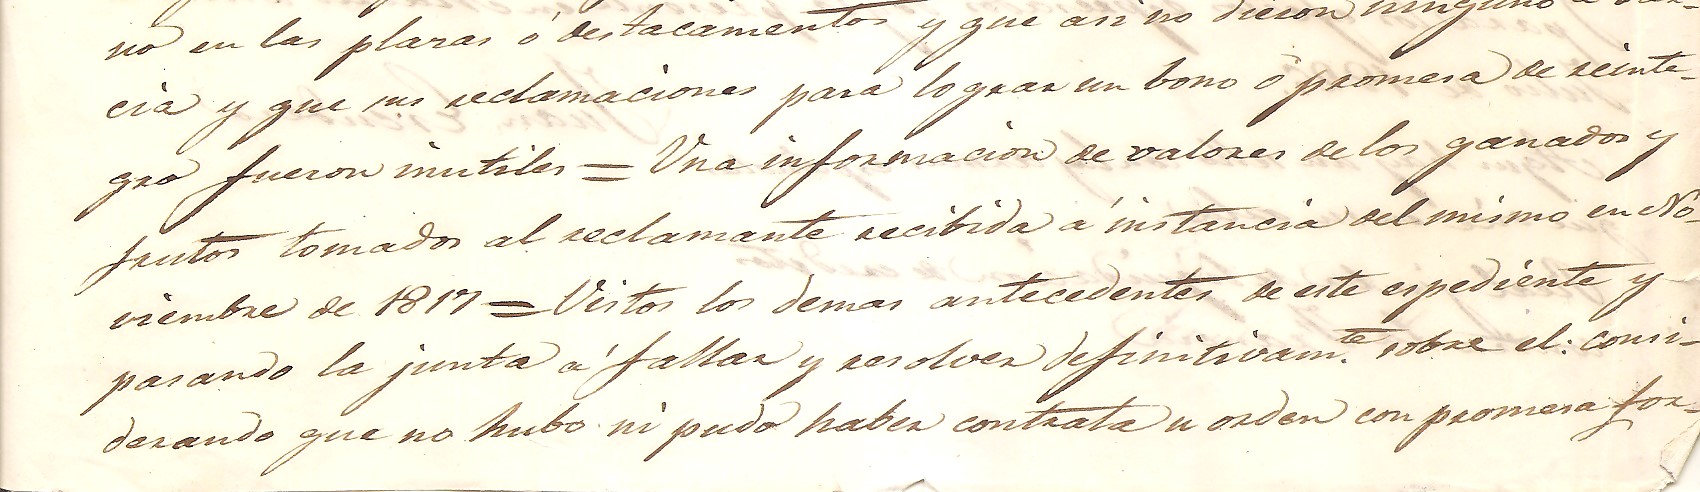 no en las plazas ó destacamentos y que asi no dieron ninguno a
cia y que sus reclamaciones para lograr un bono ó promesa de reinte-
gro fueron inutiles = Una informacion de valores de los ganados y
frutos tomados al reclamante recibida á instancia del mismo en No-
viembre de 1817 = Vistos los demas antecedentes de este espediente y
pasando la junta á fallar y resolver definitivam.te sobre el: consi-
derando que no hubo ni pudo haber contrata u orden con promesa for-